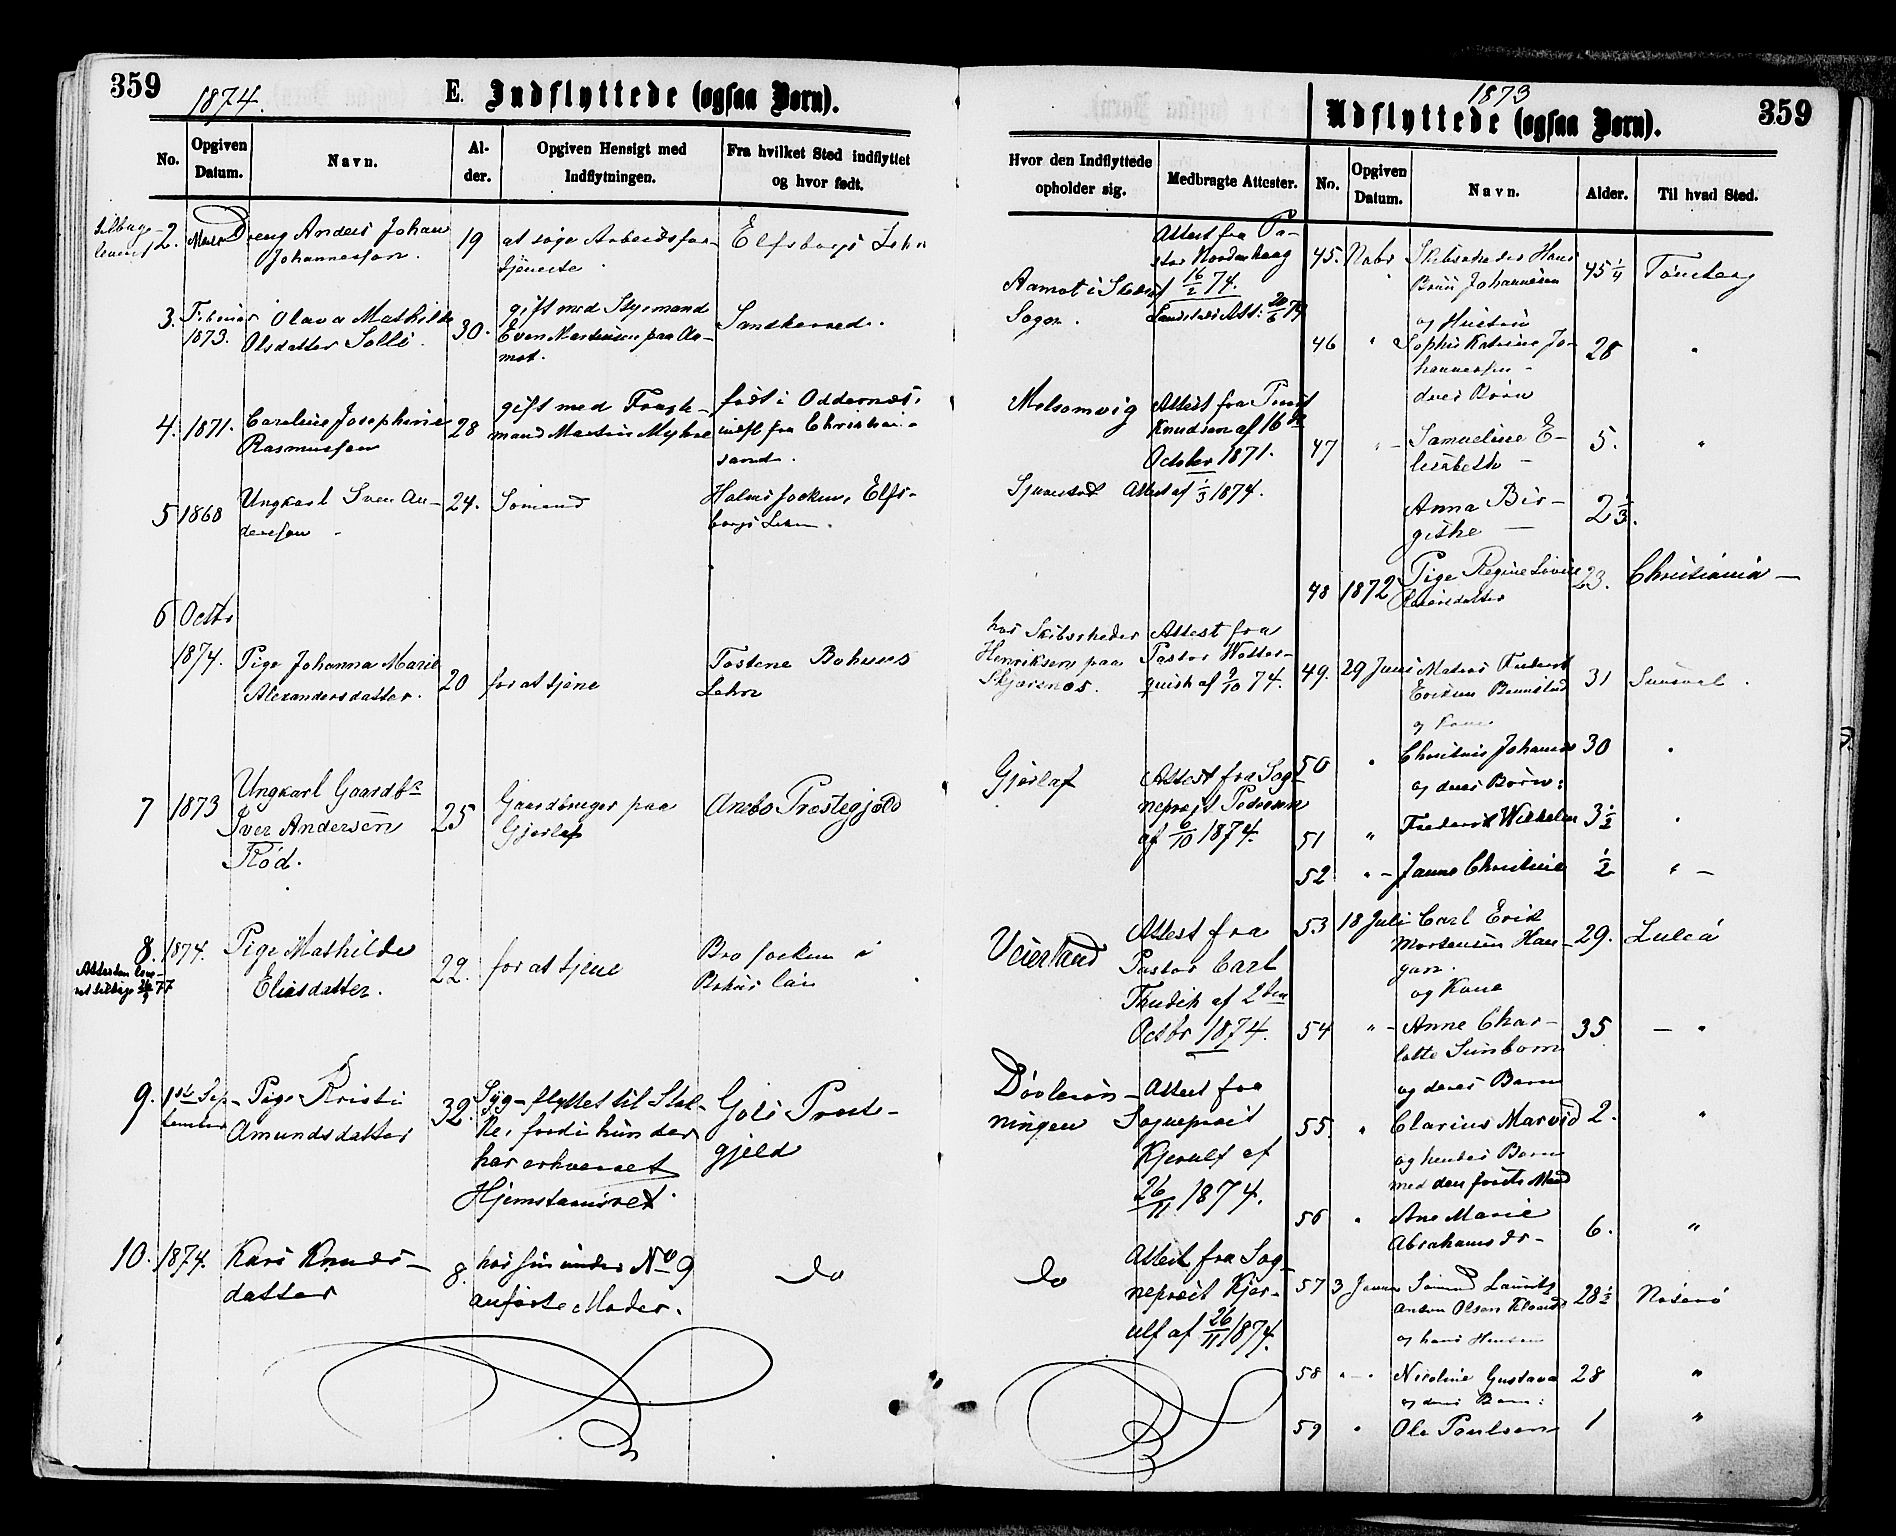 359
1874.
E. Indflyttede (ogsaa Børn).
No.
Opgiven
Datum.
Navn.
Al-
der.
Opgiven Hensigt med
Indflytningen.
Fra hvilket Sted indflyttet
og hvor født.
Hvor den Indflyttede
opholder sig.
Medbragte Attester.
2. Dreng Anders Johan
Johannesson. 19 at søge Arbeidsfor-
tjeneste. Elfsborgs Lehn
Attest fra Pa-
stor
16/2 74.
3. Februar
1873. Olava Mathilde
Olsdatter Solli. 30. gift med Styrmand
Even Martinsen paa Aa-
mot. Sandkerred.
Aamot i
Sogn.
Att: 20/6 74
4. 1871. Caroline Josephine
Rasmussen 28 gift med Fragte-
mand Martin Myhre
født i Oddernes,
indfl fra Christian-
sand.
Melsomvig Attest fra
Knudsen af 16de
October 1871.
5 1868 Ungkarl Sven An-
dersson 24. Sømand Elfs-
borgs Lehn.
Attest af 1/3 1874.
6 Octbr
1874. Pige Johanna Marie
Alexandersdatter. 20 for at tjene Bohuus
Lehn
hos Skibsrheder
Henriksen paa
Attest fra
Pastor Wetter-
quist af 9/10 74.
7 1873 Ungkarl Gaardbr
Iver Andersen
Rød. 25 Gaardbruger paa
Gjerløf Præstegjeld
Gjerløf Attest fra Sog-
nepræst Pedersen
af 6/10 1874.
8. 1874. Pige Mathilde
Eliasdatter. 22. for at tjene Bro socken i
Bohus län
Attesten leve-
ret tilbage 77
Veierland Attest fra
Pastor Carl
af 2den
Octbr 1874.
9. 1ste Sep-
tember Pige Kristi
Amundsdatter 32. Syg - flyttet til Stok-
ke, fordi hun der
har erhvervet
Hjemstavnsret. Gols Præste-
gjeld
ningen Attest fra
Sognepræst
Kjerulf af
26/11 1874.
10. 1874. Kari Knuds-
datter 8. hos sin under No 9
anførte Moder. do
do Attest fra Sog-
nepræst Kjer-
ulf af 26/11 1874.
1873
Udflyttede (ogsaa Børn).
359
No.
Opgiven
Datum.
Navn.
Alder.
Til hvad Sted.
45. Novbr Skibsrheder Hans
Bruu Johannesen 45 1/4 Tønsberg
og Hustru
46 " Sophie Katrine Jo-
hannessen - 28 "
deres Børn
47 " - Samueline E-
lisabeth - 5. "
Anna Bir-
githe - 2 1/3.
48 1872 Pige Regine Lovise
23. Christiania -
49. 29 Juni Matros Frederik
Eriksen 31
og Kone
50 " Johanne 30 "
og deres Børn:
51 " Frederik Wilhelm 3 1/2 "
52 " - Janna Christine 1/2 " -
53 18 Juli Carl Erik
Mortensen Han-
gan. 29. Luleå
og Kone
54 " - Anne Char-
lotte Sunbom 35 - "
og deres Barn
55. " Clarius Marvid 2. "
og hendes Barn
med den første Mand
56 " Ane Marie
Abrahamsdr - 6. "
57 3 Sømand Lauritz
Anton Olsen 28 1/2 Nøterø
og hans Hustru
58 " - " Nicoline Gustava 28 "
og deres Barn:
59 " Ole Paulsen 1 "